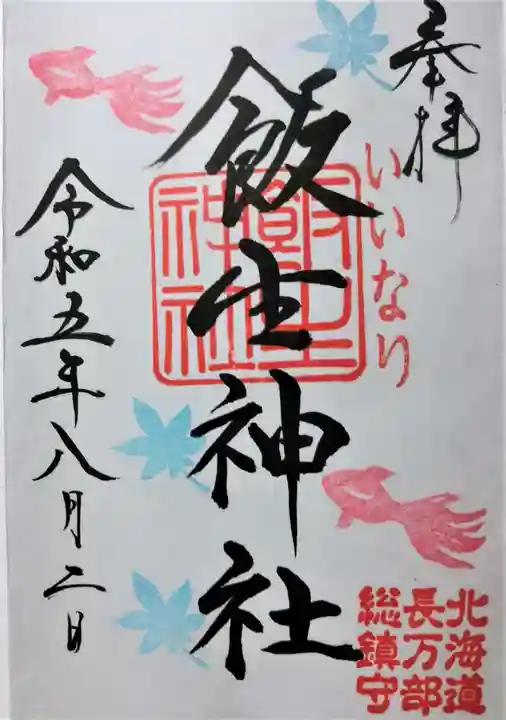 奉拝
いいなり
北海道
長万部
総鎮守
飯生神社
飯生
神社
令和五年八月二日